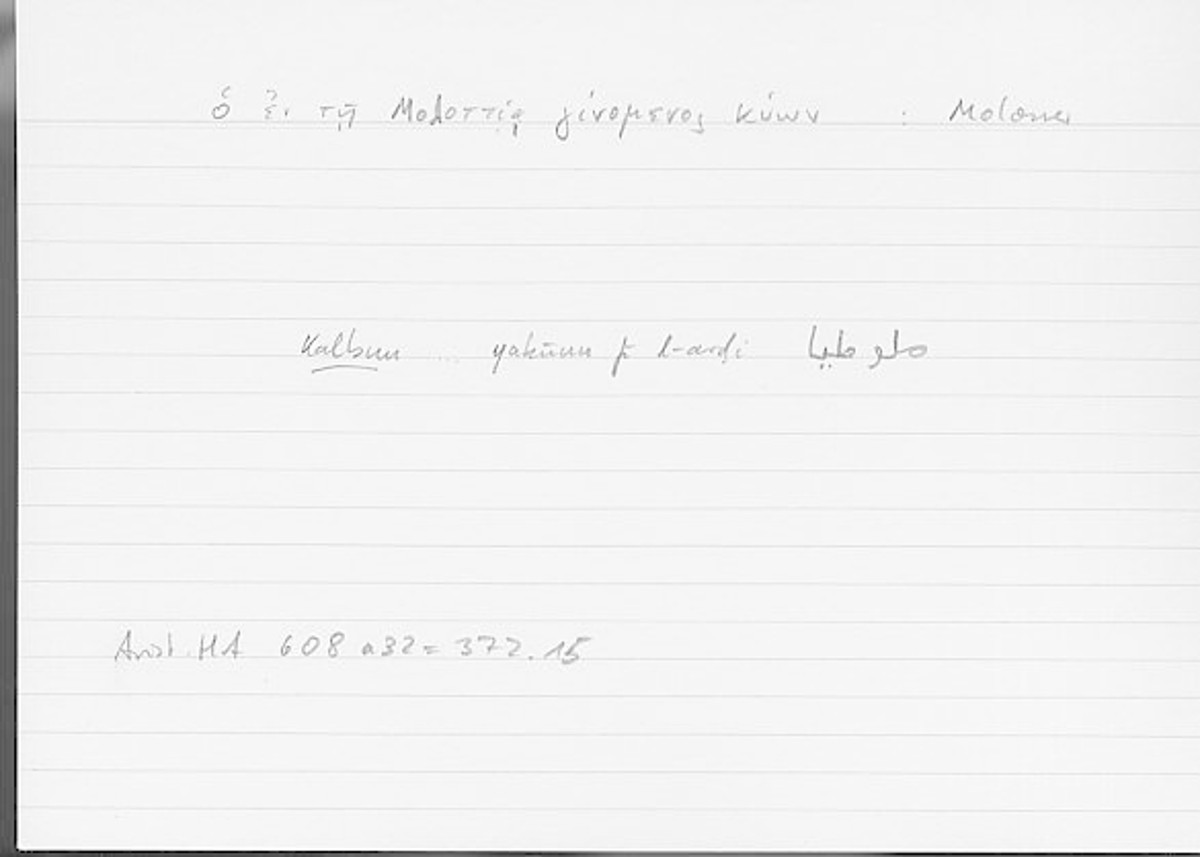 ὁ ἐν τῇ Μολοττίᾳ γινόμενος κύων : Molosser
Kalbun ... yakūnu fī l-arḍi ملوطيا
Arist. HA 608 a32 = 372.15